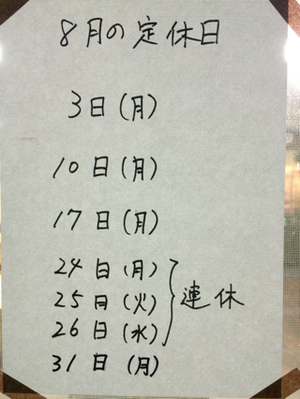 8月の定休日
3日(月)
10日(月)
17日(月)
24日(月)
25日(火)
26日(水)
連休
31日(月)